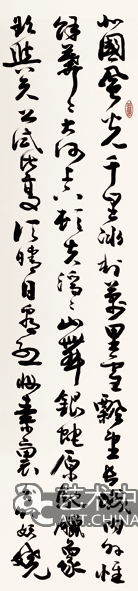 北國風光千里冰封萬里雪飄望長城內外惟
餘莽々大河上下頓失滔々山舞銀蛇原馳蠟象
欲與天公試比高須晴日看紅妝素裹分外妖嬈